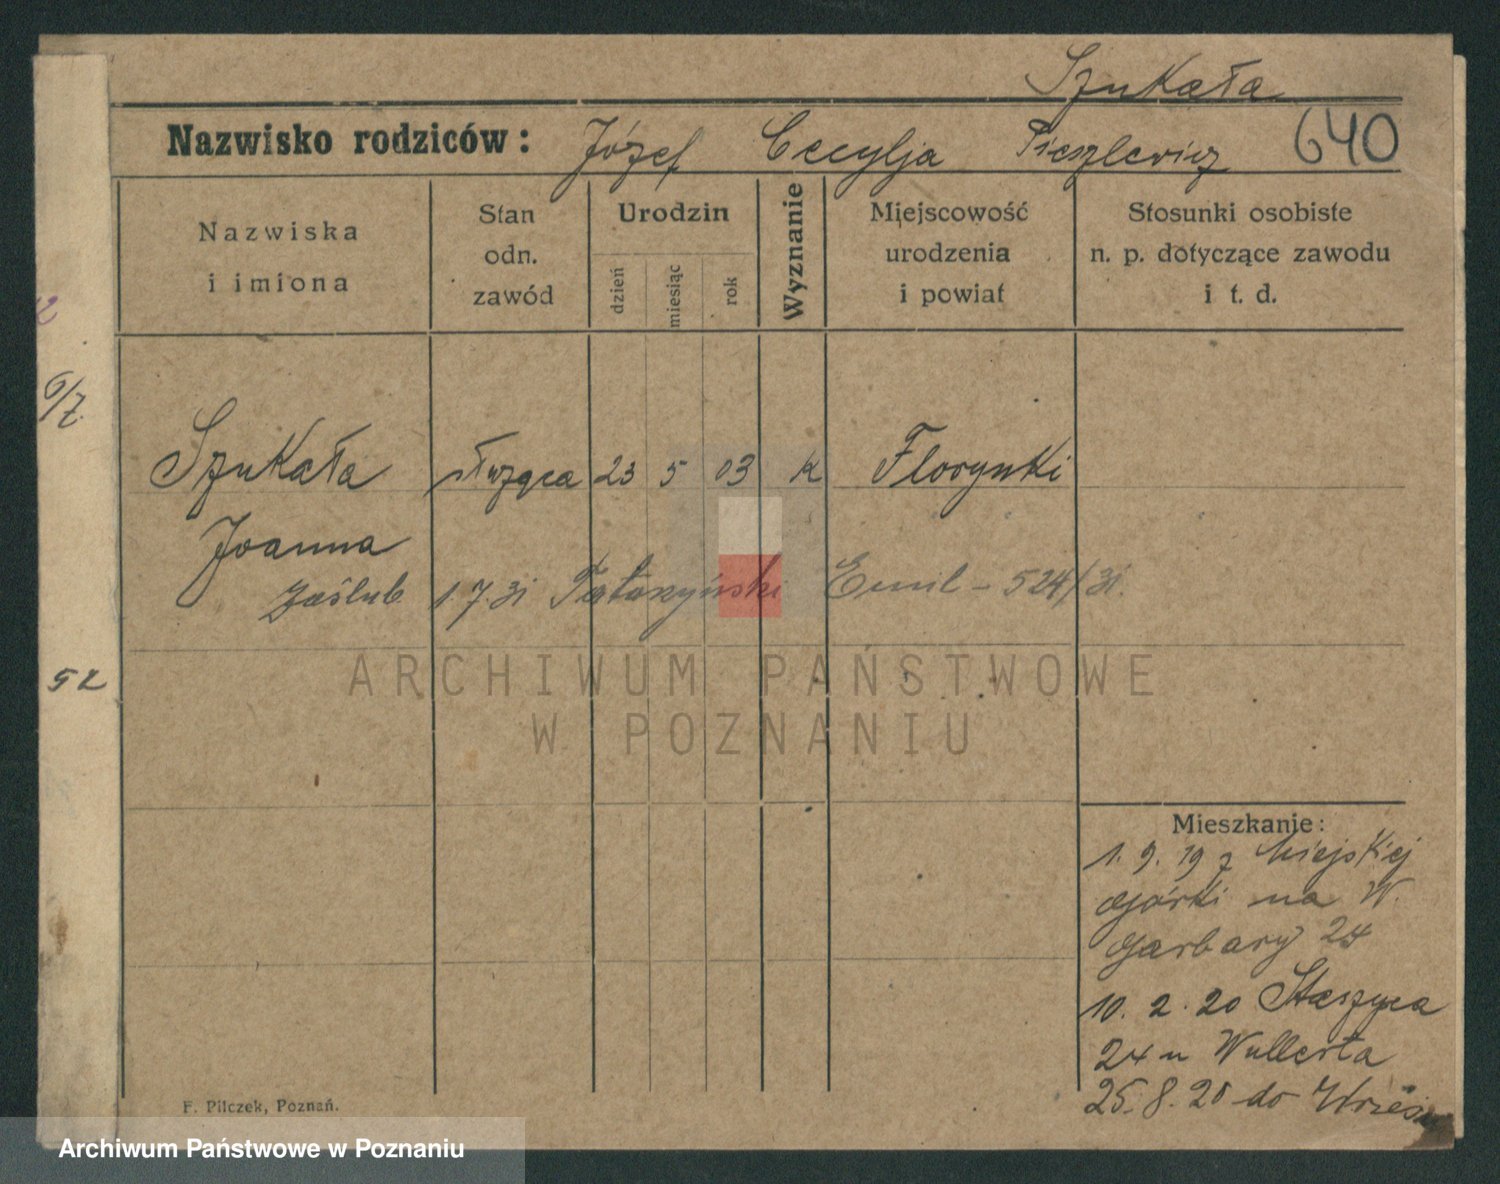 Szukała
Nazwisko rodziców: Józef Cecylja 640
Nazwiska i imiona
Stan odn. zawód
Urodzin
dzień miesiąc rok
Wyznanie
Miejscowość urodzenia i powiat
Stosunki osobiste n. p. dotyczące zawodu i t. d.
6/7.
Szukała służąca 23 5 03 k Florynki
Joanna
Zaślub. 1.7.31 Emil - 524/31.
52
ARCHIWUM PAŃSTWOWE
W POZNANIU
Mieszkanie:
1. 9. 19 z Miejskiej
Górki na W.
Garbary 24
10. 2. 20 Staszyca
24 u Wullerta
25. 8. 20 do
F. Pilczek, Poznań.
Archiwum Państwowe w Poznaniu